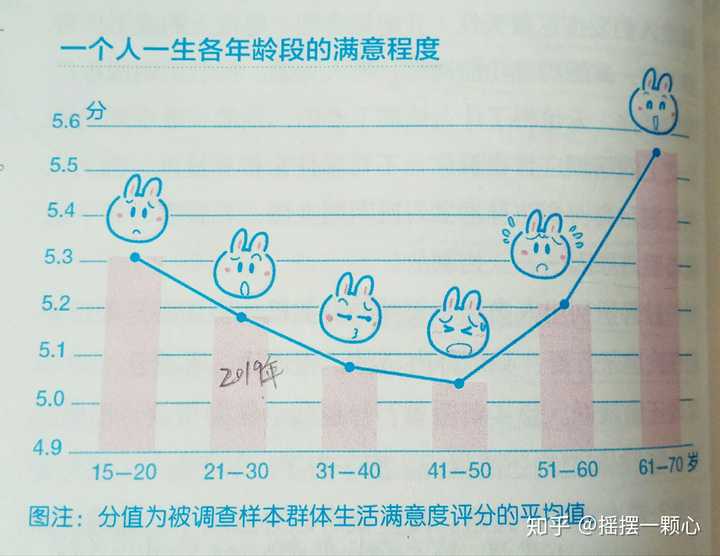 一个人一生各年龄段的满意程度
分
5.6
5.5
5.4
5.3
5.2
5.1
5.0
4.9
2019年
15—20 21—30 31—40 41—50 51—60 61—70 岁
图注：分值为被调查样本群体生活满意度评分的平均值
知乎 @摇摆一颗心